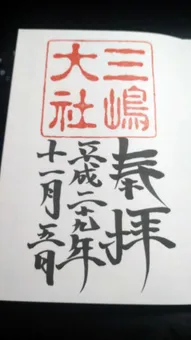 奉拝
三嶋
大社
平成二十九年
十一月五日